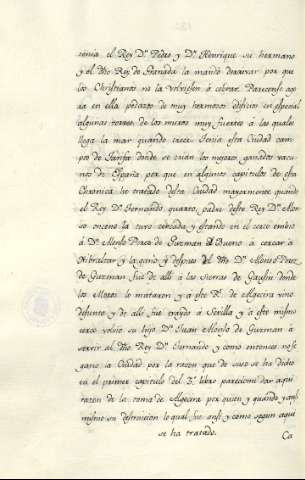 tenia el Rey Dn. Pedro y Dn. Henrique su hermano
y el dho Rey de Granada la mandó derrocar por que
los Christianos no la volviesen á cobrar. Parecense oy
dia en ella pedazos de muy hermosos edificios en especial
algunas torres de los muros muy fuertes á las quales
llega la mar quando crece. Tenia esta Ciudad cam
po de Tarifa donde se crian los mejores ganados vacu
nos de España por que en algunos capitulos de esta
Coronica he tratado desta Ciudad mayormente quando
el Rey Dn. Fernando quarto padre deste Rey Dn. Alon
so onceno la tuvo cercada y estando en el cerco embio
á Dn. Alonso Perez de Guzman el Bueno á cercar á
Gibraltar y la gano y despues el dho Dn. Alonso Perez
de Guzman fue de alli á las Sierras de Gausin donde
los Moros lo mataron y a este Rl. de Algecira vino
defunto y de alli fue traydo á Sevilla y á este mismo
cerco volvio su hijo Dn. Juan Alonso de Guzman á
servir al dho Rey Dn. Fernando y como entonces no se
gano la Ciudad por la razon que de suso se ha dicho
en el primer capitulo del 3º. libro pareciome dar aqui
razon de la toma de Algecira por quien y quando y ansi
mismo su destruicion lo qual fue ansi y como segun aqui
se ha tratado.
Ca